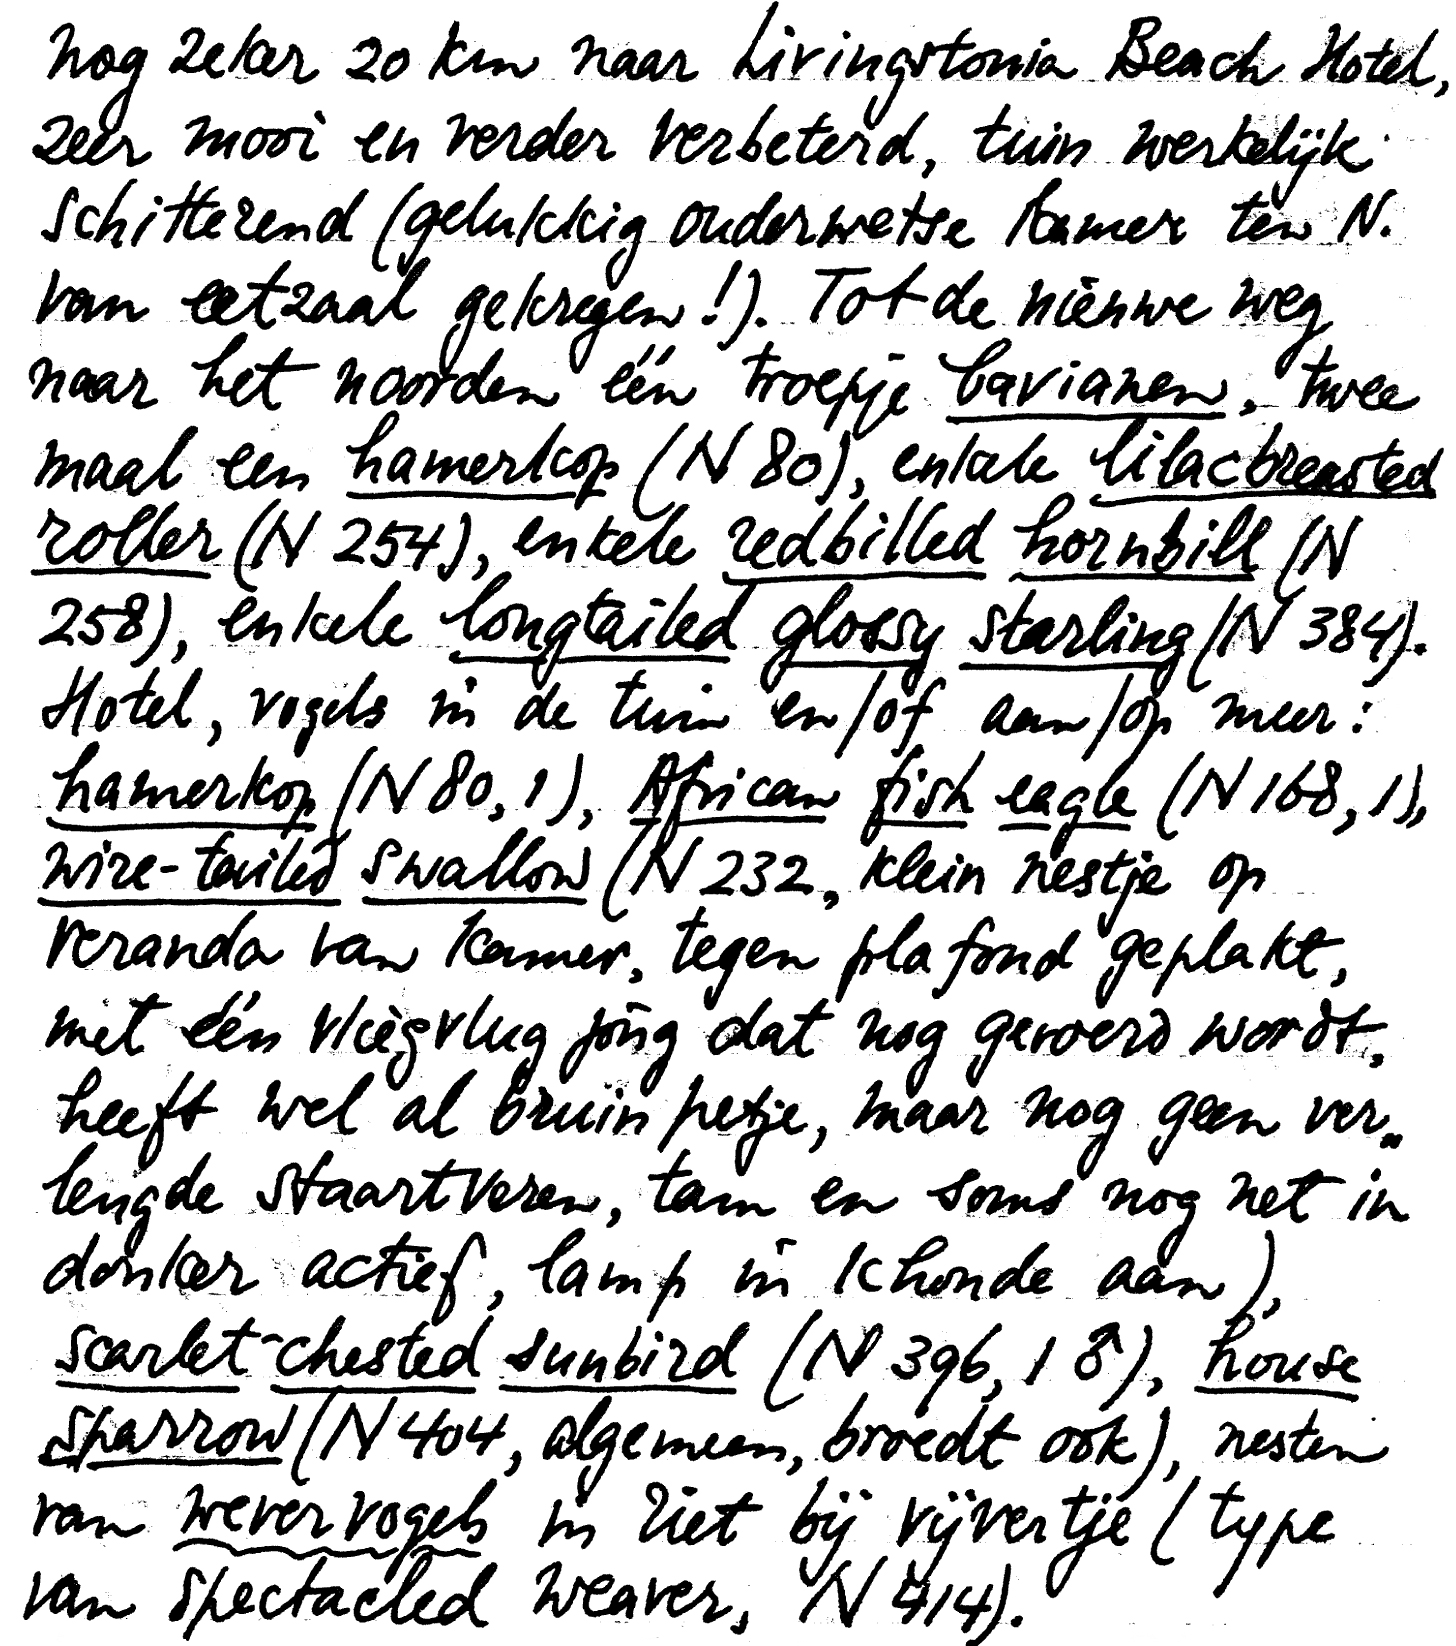 nog zeker 20 km naar Livingstonia Beach Hotel,
zeer mooi en verder verbeterd, tuin werkelijk
schitterend (gelukkig ouderwetse kamer ten N.
van eetzaal gekregen!). Tot de nieuwe weg
naar het noorden één troepje bavianen, twee
maal een hamerkop (N 80), enkele lilacbreasted
roller (N 254), enkele redbilled hornbill (N
258), enkele longtailed glossy starling (N 384).
Hotel, vogels in de tuin en/of aan/op meer:
hamerkop (N 80, 1), African fish eagle (N 168, 1),
wire-tailed swallow (N 232, klein nestje op
veranda van kamer, tegen plafond geplakt,
met één vliegvlug jong dat nog gevoerd wordt,
heeft wel al bruin petje, maar nog geen ver„
lengde staartveren, tam en soms nog net in
donker actief, lamp in khonde aan),
scarlet-chested sunbird (N 396, 1 ♂), house
sparrow (N 404, algemeen, broedt ook), nesten
van wevervogels in riet bij vijvertje (type
van spectacled weaver, N 414).